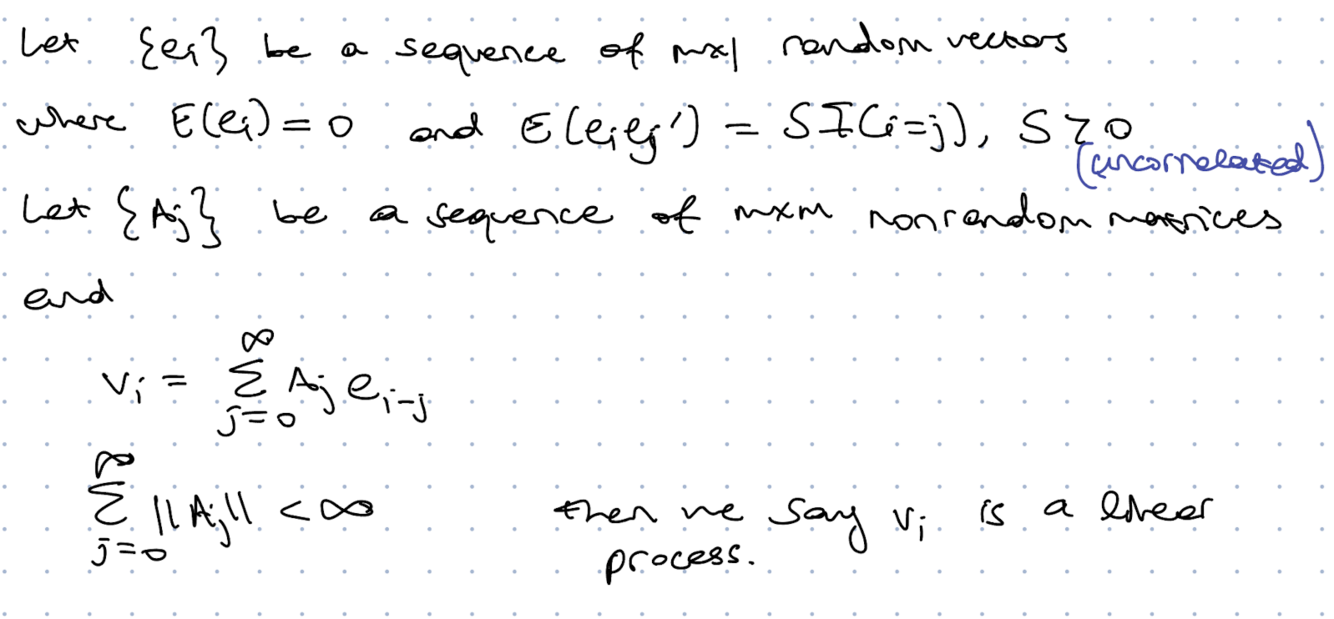 Let {eᵢ} be a sequence of mx1 random vectors
where E(eᵢ) = 0 and E(eᵢeⱼ') = S I(i=j), S ≥ 0
(uncorrelated)
Let {Aⱼ} be a sequence of mxm nonrandom matrices
and
vᵢ = ∑_{j=0}^{∞} Aⱼ e_{i-j}
∑_{j=0}^{∞} ||Aⱼ|| < ∞ then we say vᵢ is a linear
process.